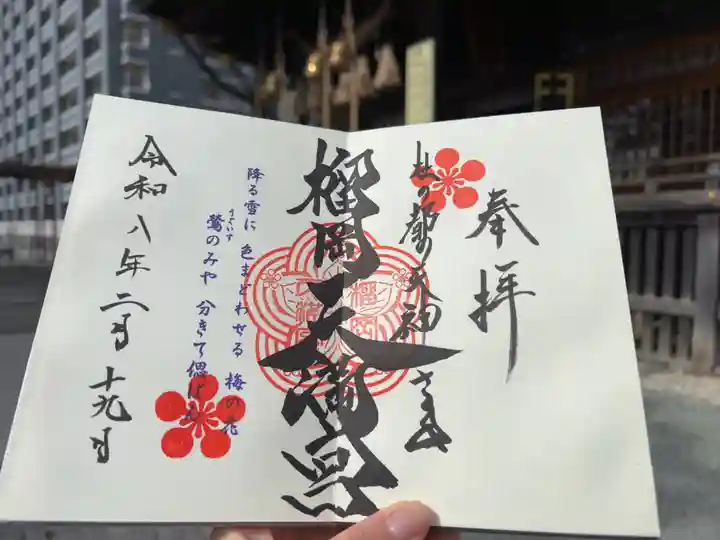 奉拝
杜の都の天神さま
榴岡天満宮
降る雪に 色まどわせる 梅の花
うぐいす
鶯のみや 分きて偲ばむ
令和八年二月十九日